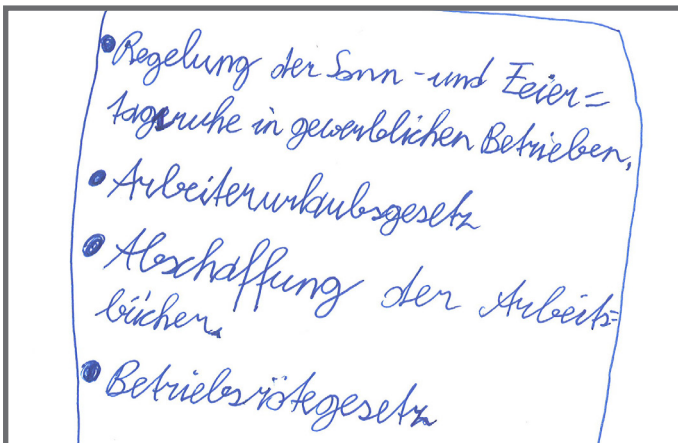 • Regelung der Sonn-und Feier=
tagsruhe in gewerblichen Betrieben,
• Arbeiterurlaubsgesetz
• Abschaffung der Arbeits=
bücher.
• Betriebsrätegesetz